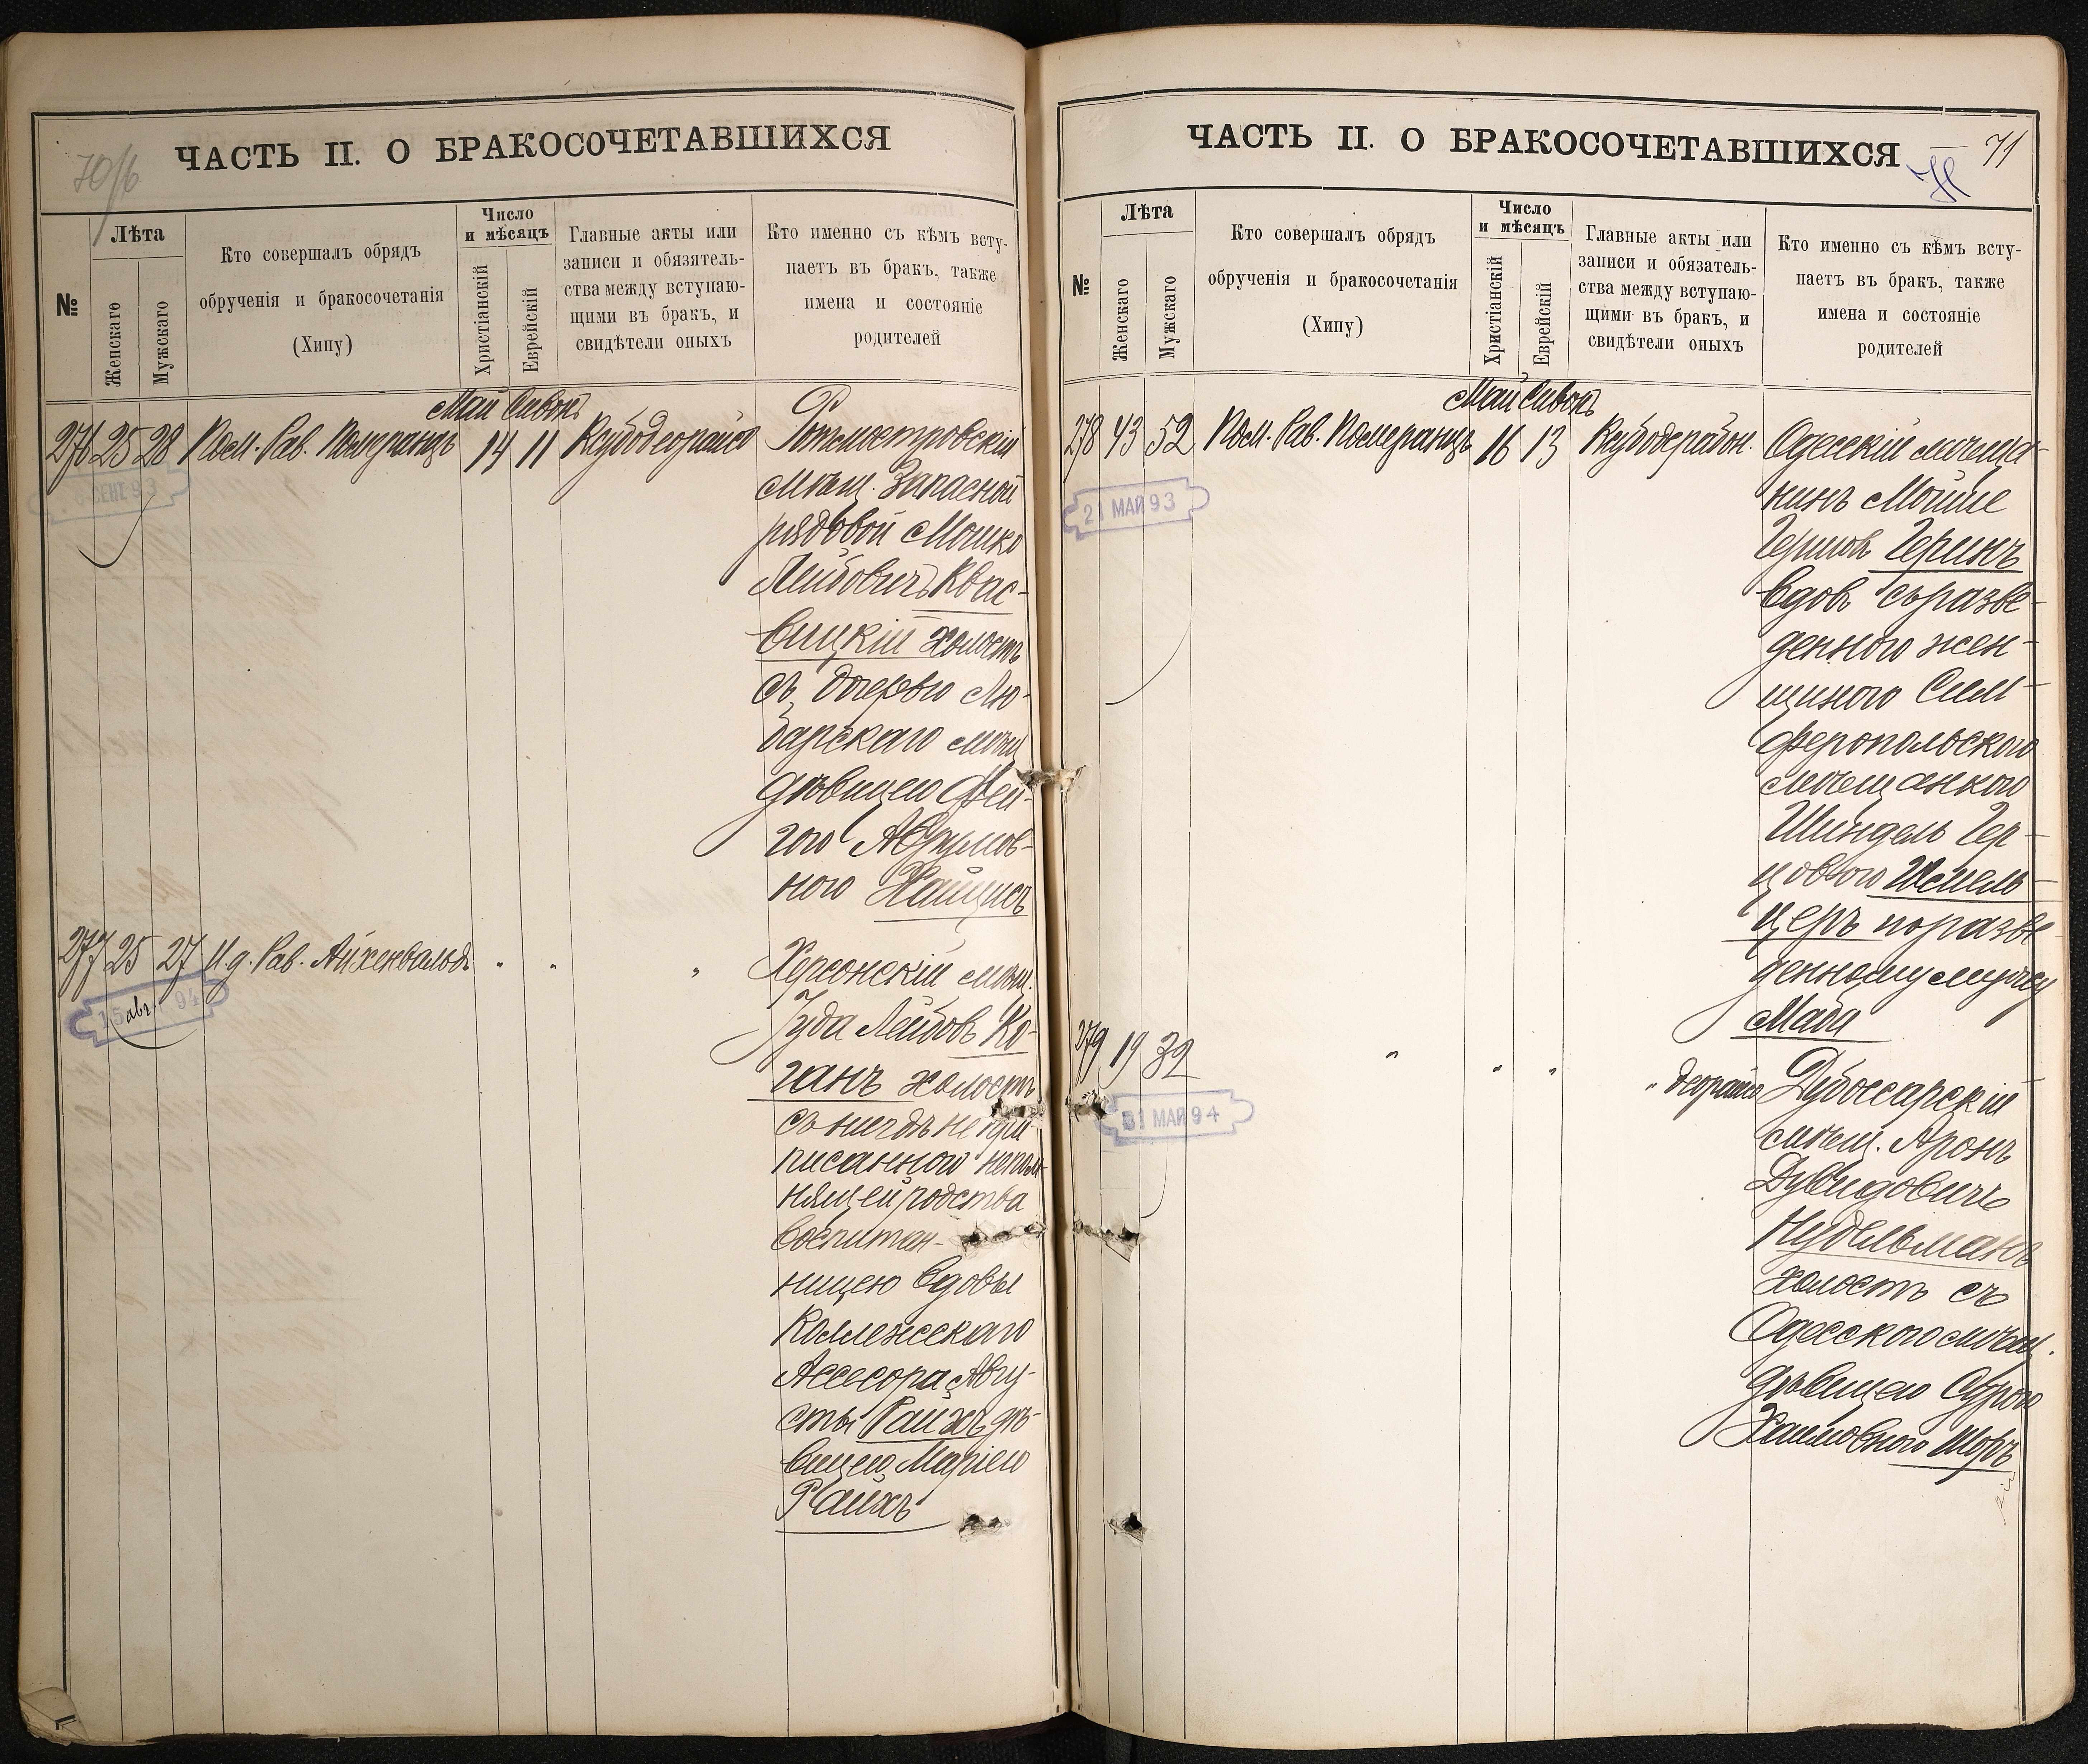 70/б
ЧАСТЬ II. О БРАКОСОЧЕТАВШИХСЯ
№
Лѣта
Женскаго
Мужскаго
Кто совершалъ обрядъ
обрученія и бракосочетанія
(Хипу)
Число
и мѣсяцъ
Христіанскій
Еврейскій
Главные акты или
записи и обязятель-
ства между вступаю-
щими въ бракъ, и
свидѣтели оныхъ
Кто именно съ кѣмъ всту-
паетъ въ брак, также
имена и состояніе
родителей
Май Сивонъ
276 25 28 Пом. Рав. Померанцъ 14 11 Ксубодеорайсо
Ротмистровскій
мѣщ. Запасной
рядовой Мошко
Лейбовичъ Квас-
вицкій холостъ
съ дочерью Лю-
барскаго мѣщ
дѣвицею Фей-
гою Аврумов-
ною Хайцисъ
277 25 27 И.д. Рав. Айхенвальдъ " " "
15 авг. 94
Херсонскій мѣщ.
Іуда Лейбовъ Ко-
ганъ холостъ
съ нигдѣ не при-
писанною непом-
нящей родства
воспитан-
ницею вдовы
Коллежскаго
Ассесора Авгу-
сты Райхъ дѣ-
вицею Маріею
Райхъ
71
ЧАСТЬ II. О БРАКОСОЧЕТАВШИХСЯ
№
Лѣта
Женскаго
Мужскаго
Кто совершалъ обрядъ
обрученія и бракосочетанія
(Хипу)
Число
и мѣсяцъ
Христіанскій
Еврейскій
Главные акты или
записи и обязатель-
ства между вступаю-
щими въ бракъ, и
свидѣтели оныхъ
Кто именно съ кѣмъ всту-
паетъ въ бракъ, также
имена и состояніе
родителей
Май Сивонъ
278 43 52 Пом. Рав. Померанцъ 16 13 Ксубодерабон.
21 МАЙ 93
Одесскій мѣща-
нинъ Мойше
Гершовъ Геринъ
вдов съ разве-
денною жен-
щиною Сим-
феропольскою
мѣщанкою
Шиндель Гер-
цовою Шмель-
церъ по разве-
денному мужу
Маба
279 19 32 " " " " деорайсо
31 МАЙ 94
Дубоссарскій
мѣщ. Аронъ
Дувидовичъ
Нудельманъ
холостъ съ
Одесскою мѣщ.
дѣвицею Сурою
Хаимовною Шоръ